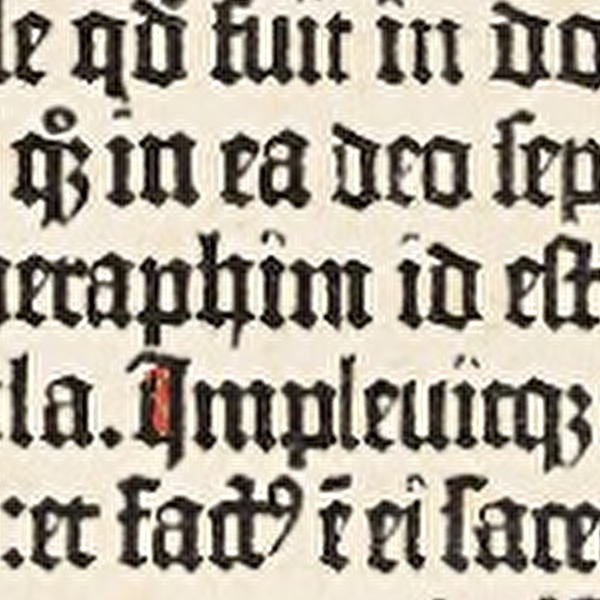 le qđ fuit in do
qꝫ̊ in ea deo ſep
eraphim id eſt
la. Impleuitqꝫ
:et factꝰ ē ei ſace